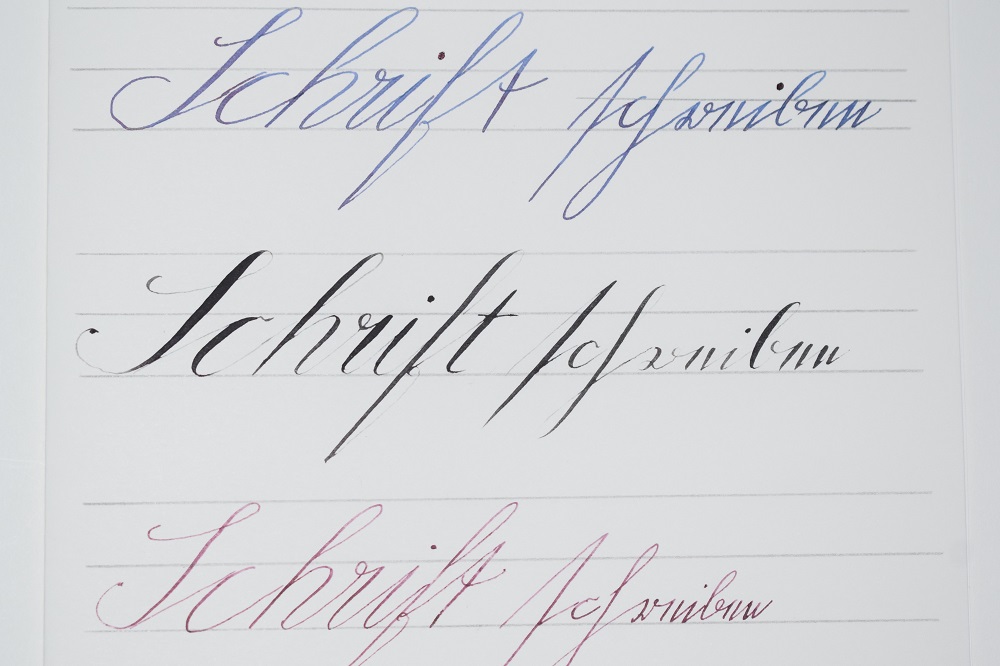 Schrift schreiben
Schrift schreiben
Schrift schreiben